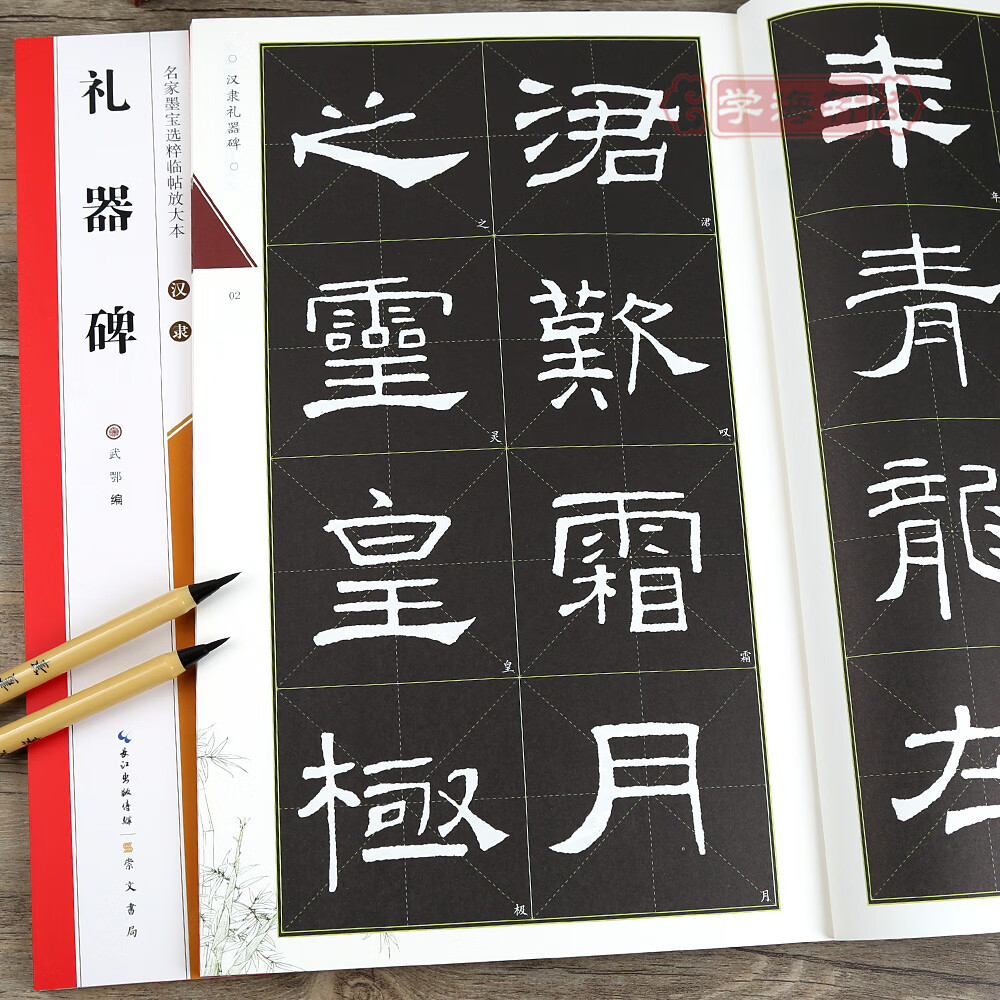 礼器碑
名家墨宝选粹临帖放大本
汉隶
武鄂 编
长江出版传媒
崇文书局
汉隶礼器碑
02
学海轩
年青龍在
年
涒歎霜月
涒
叹
霜
月
之靈皇極
之
灵
皇
极